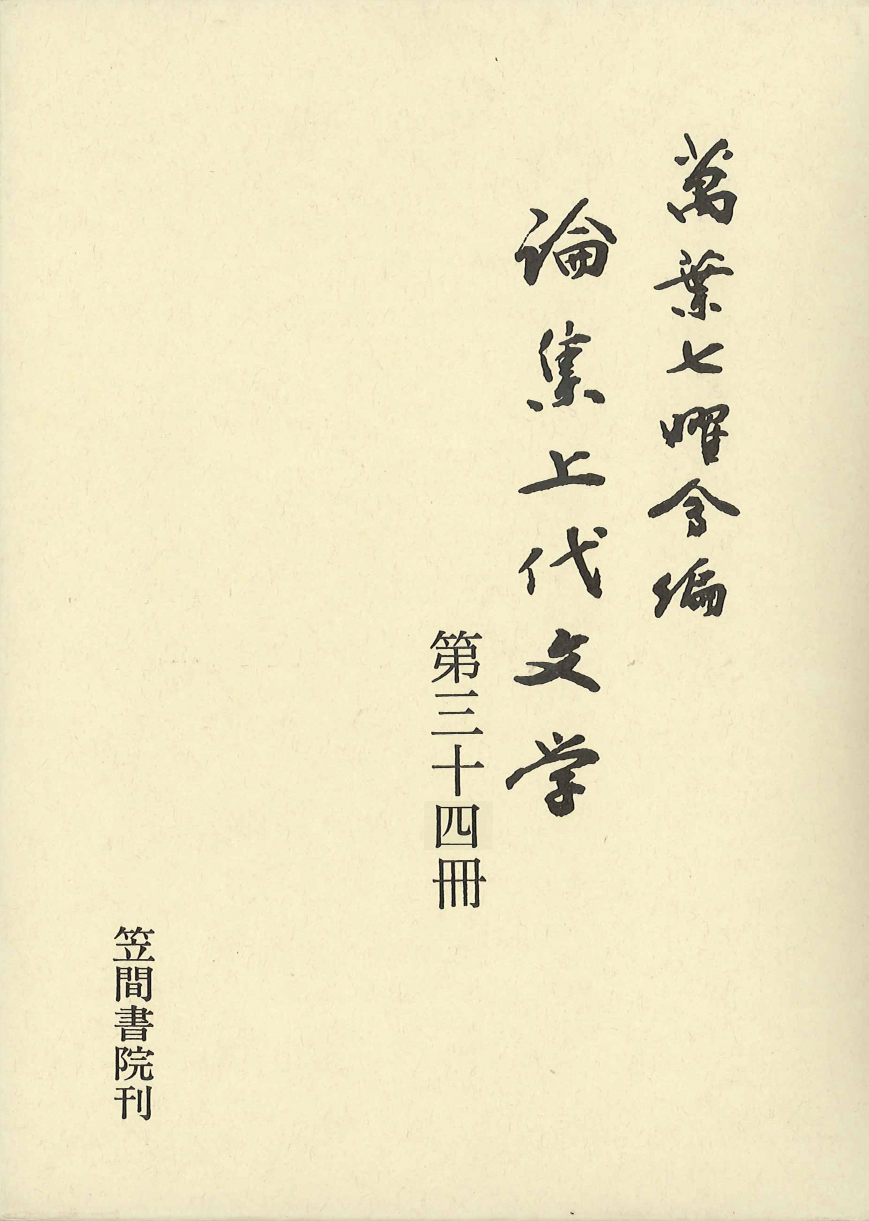 萬葉七曜会編
論集上代文学
第三十四冊
笠間書院刊